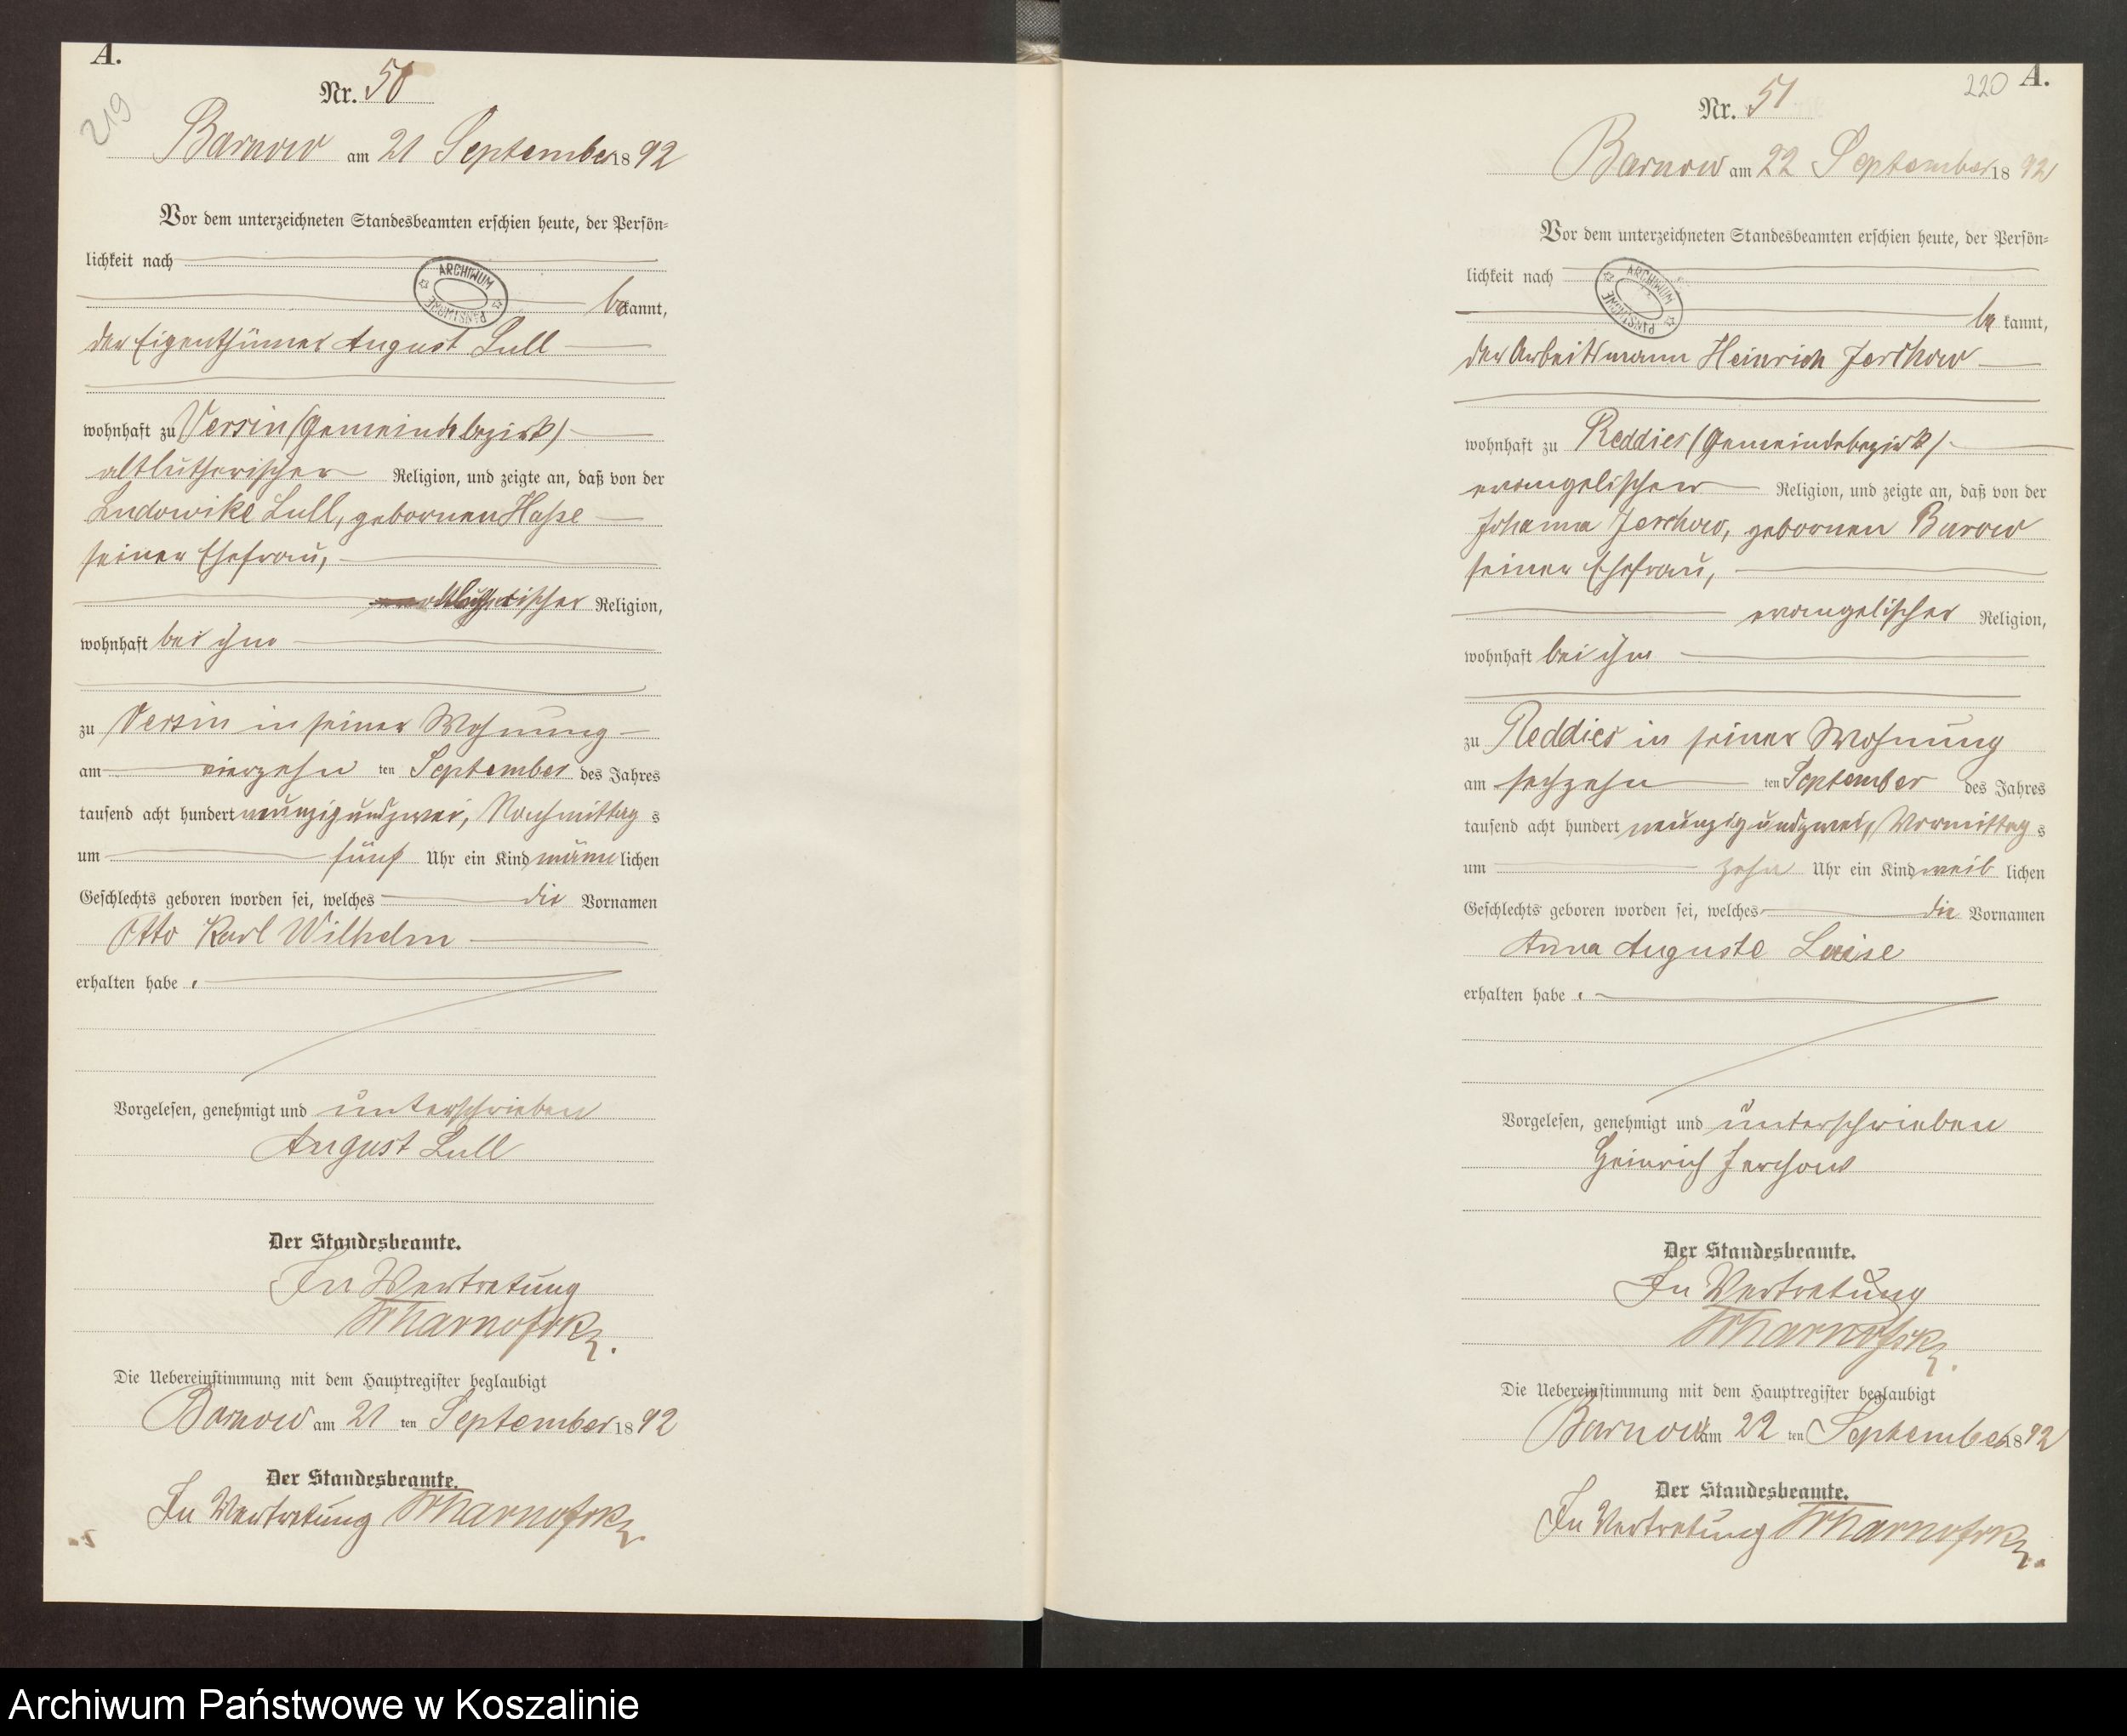 A.
219
Nr. 50
Barnow am 21 September 1892
Vor dem unterzeichneten Standesbeamten erschien heute, der Persön-
lichkeit nach
ARCHIWUM PAŃSTWOWE
bekannt,
der Eigenthümer August Lull
wohnhaft zu Versin (Gemeindebezirk)
altlutherischer Religion, und zeigte an, daß von der
Ludowike Lull, gebornen Haße
seiner Ehefrau,
altlutherischer Religion,
wohnhaft bei ihm
zu Versin in seiner Wohnung
am vierzehn ten September des Jahres
tausend acht hundert neunzig und zwei, Nachmittag s
um fünf Uhr ein Kind männlichen
Geschlechts geboren worden sei, welches die Vornamen
Otto Karl Wilhelm
erhalten habe.
Vorgelesen, genehmigt und unterschrieben
August Lull
Der Standesbeamte.
In Vertretung
Die Uebereinstimmung mit dem Hauptregister beglaubigt
Barnow am 21 ten September 1892
Der Standesbeamte.
In Vertretung
220 A.
Nr. 51
Barnow am 22 September 1892
Vor dem unterzeichneten Standesbeamten erschien heute, der Persön-
lichkeit nach
ARCHIWUM PAŃSTWOWE
be kannt,
der Arbeitsmann Heinrich Jerchow
wohnhaft zu Reddies (Gemeindebezirk)
evangelischer Religion, und zeigte an, daß von der
Johanna Jerchow, gebornen Barow
seiner Ehefrau,
evangelischer Religion,
wohnhaft bei ihm
zu Reddies in seiner Wohnung
am sechzehn ten September des Jahres
tausend acht hundert neunzig und zwei, Vormittag s
um zehn Uhr ein Kind weib lichen
Geschlechts geboren worden sei, welches die Vornamen
Anna Auguste Luise
erhalten habe.
Vorgelesen, genehmigt und unterschrieben
Heinrich Jerchow
Der Standesbeamte.
In Vertretung
Die Uebereinstimmung mit dem Hauptregister beglaubigt
Barnow am 22 ten September 1892
Der Standesbeamte.
In Vertretung
Archiwum Państwowe w Koszalinie